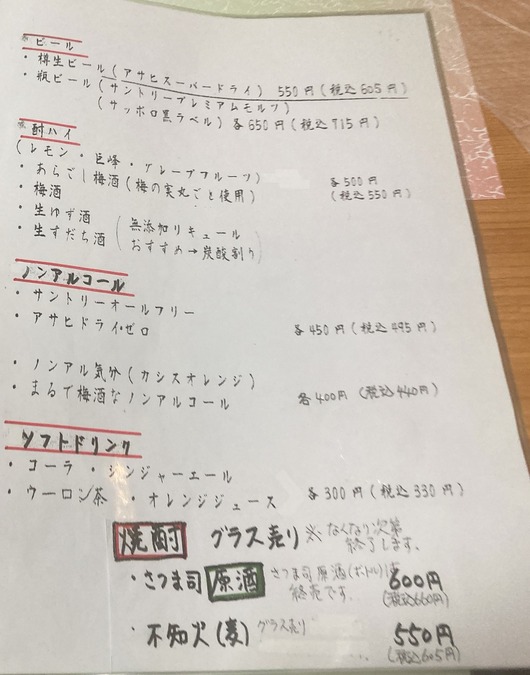 ※ビール
・樽生ビール(アサヒスーパードライ) 550円(税込605円)
・瓶ビール(サントリープレミアムモルツ)
(サッポロ黒ラベル) 各650円(税込715円)
※酎ハイ
(レモン・巨峰・グレープフルーツ)
・あらごし梅酒(梅の実丸ごと使用) 各500円
・梅酒 (税込550円)
・生ゆず酒 (無添加リキュール
・生すだち酒 おすすめ→炭酸割り)
ノンアルコール
・サントリーオールフリー
・アサヒドライ・ゼロ 各450円(税込495円)
・ノンアル気分(カシスオレンジ)
・まるで梅酒なノンアルコール 各400円(税込440円)
ソフトドリンク
・コーラ ・ジンジャーエール
・ウーロン茶 ・オレンジジュース 各300円(税込330円)
焼酎 グラス売り ※なくなり次第
終了します。
・さつま司 原酒 さつま司原酒(ボトル)は
終売です。 600円
(税込660円)
・不知火(麦) グラス売り 550円
(税込605円)